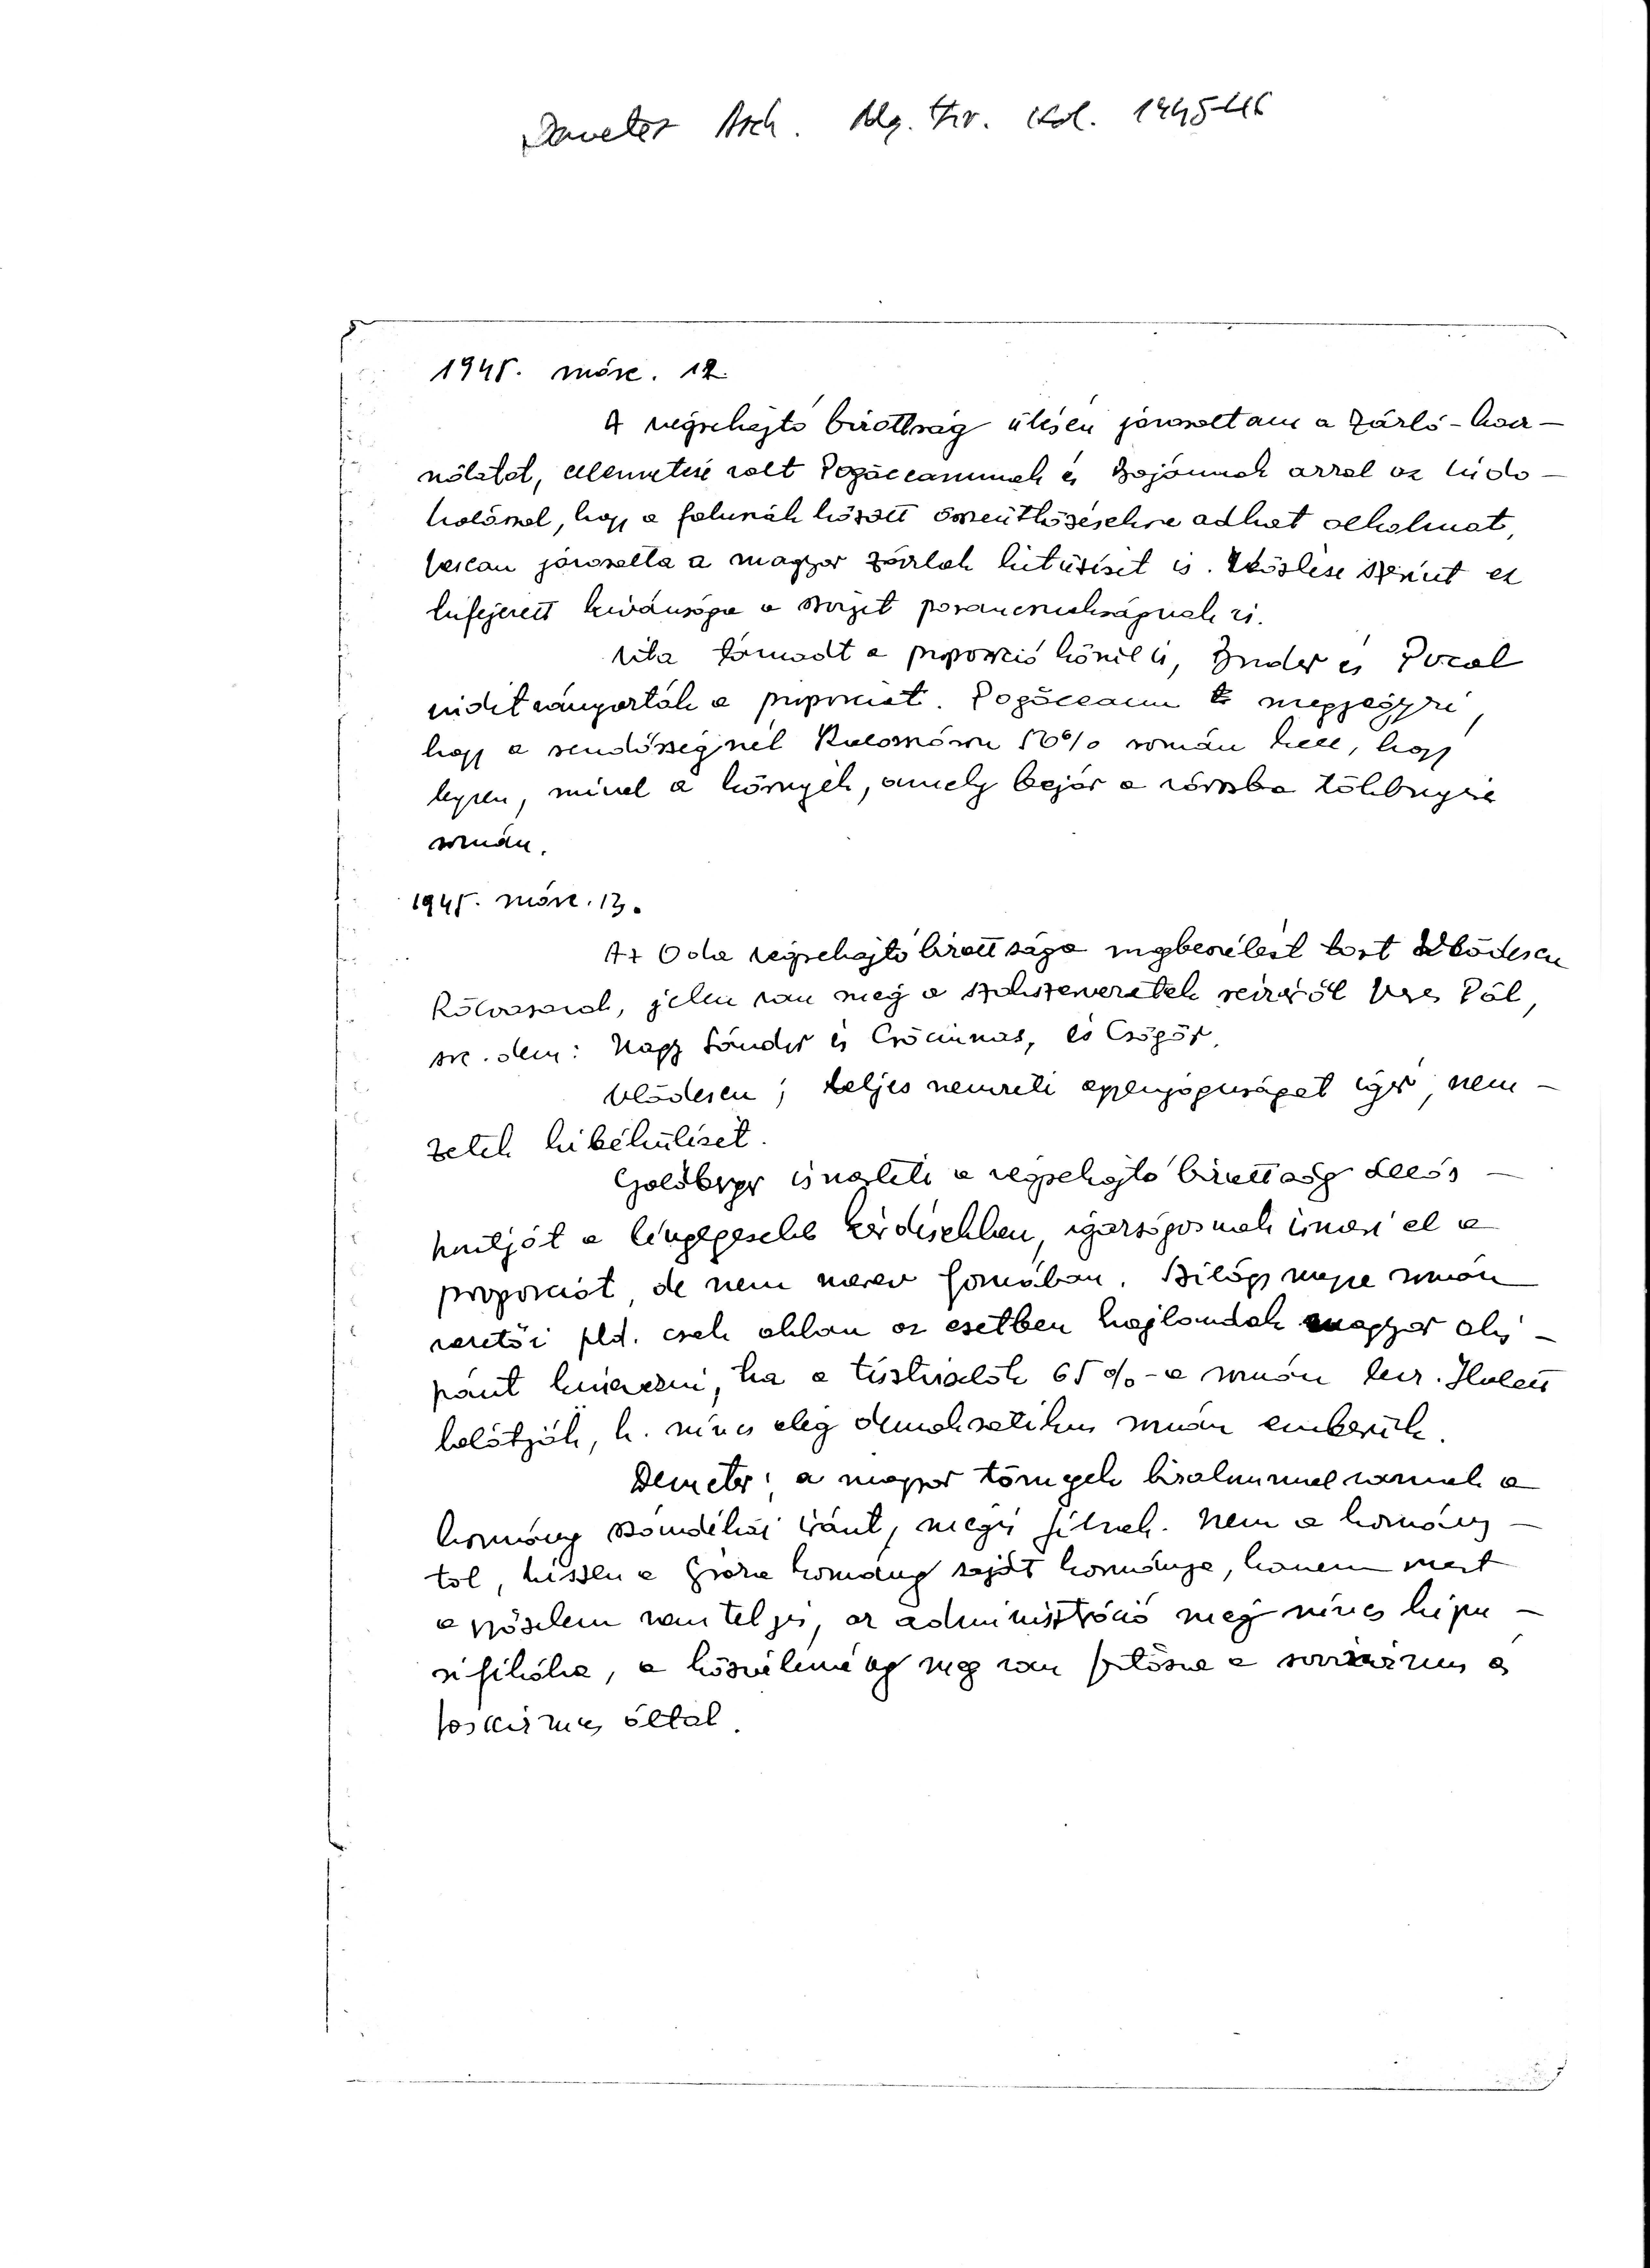 Demeter Arch. 1945-46
1945. márc. 12.
A végrehajtó bizottság ülésén javasoltam a zászló-hasz-
nálatot, ellenvetése volt Pogăceannak és Bojannak arral az indo-
kolással, hogy a falunak között összeütközésekre adhat alkalmat,
Vescan javasolta a magyar zászlók kitűzését is. Közlése szerint ez
kifejezett kívánsága a szovjet parancsnokságnak is.
Vita támadt a proporció körül is, és Pocol
indítványozták a proporciót. Pogăceanu megjegyzi,
hogy a rendőrségnél 50% román kell, hogy
legyen, mivel a környék, amely bejár a városba többnyire
román.
1945. márc. 13.
Az Odа végrehajtó bizottsága megbeszélést tart Vlădescu
jelen van még a szakszervezetek részéről Veres Pál,
szc. dem: Nagy Sándor és és Csőgör.
Vlădescu; teljes nemzeti egyenjogúságot ígér, nem-
zetek kibékülését.
Goldberger ismerteti a végrehajtó bizottság állás-
pontját a lényegesebb kérdésekben, igazságosnak ismeri el a
proporciót, de nem merev formában. Szilágy megye román
vezetői pld. csak abban az esetben hajlandók magyar alis-
pánt kinevezni, ha a tisztviselők 65%-a román lesz. Holott
belátják, h. nincs elég demokratikus román emberük.
Demeter: a magyar tömegek bizalommal vannak a
kormány szándékai iránt, mégis félnek. Nem a kormány-
tól, hiszen a Groza kormány saját kormánya, hanem mert
a győzelem van teljes, az adminisztráció még nincs
a közvélemény meg van a sovinizmus és
fascizmus által.